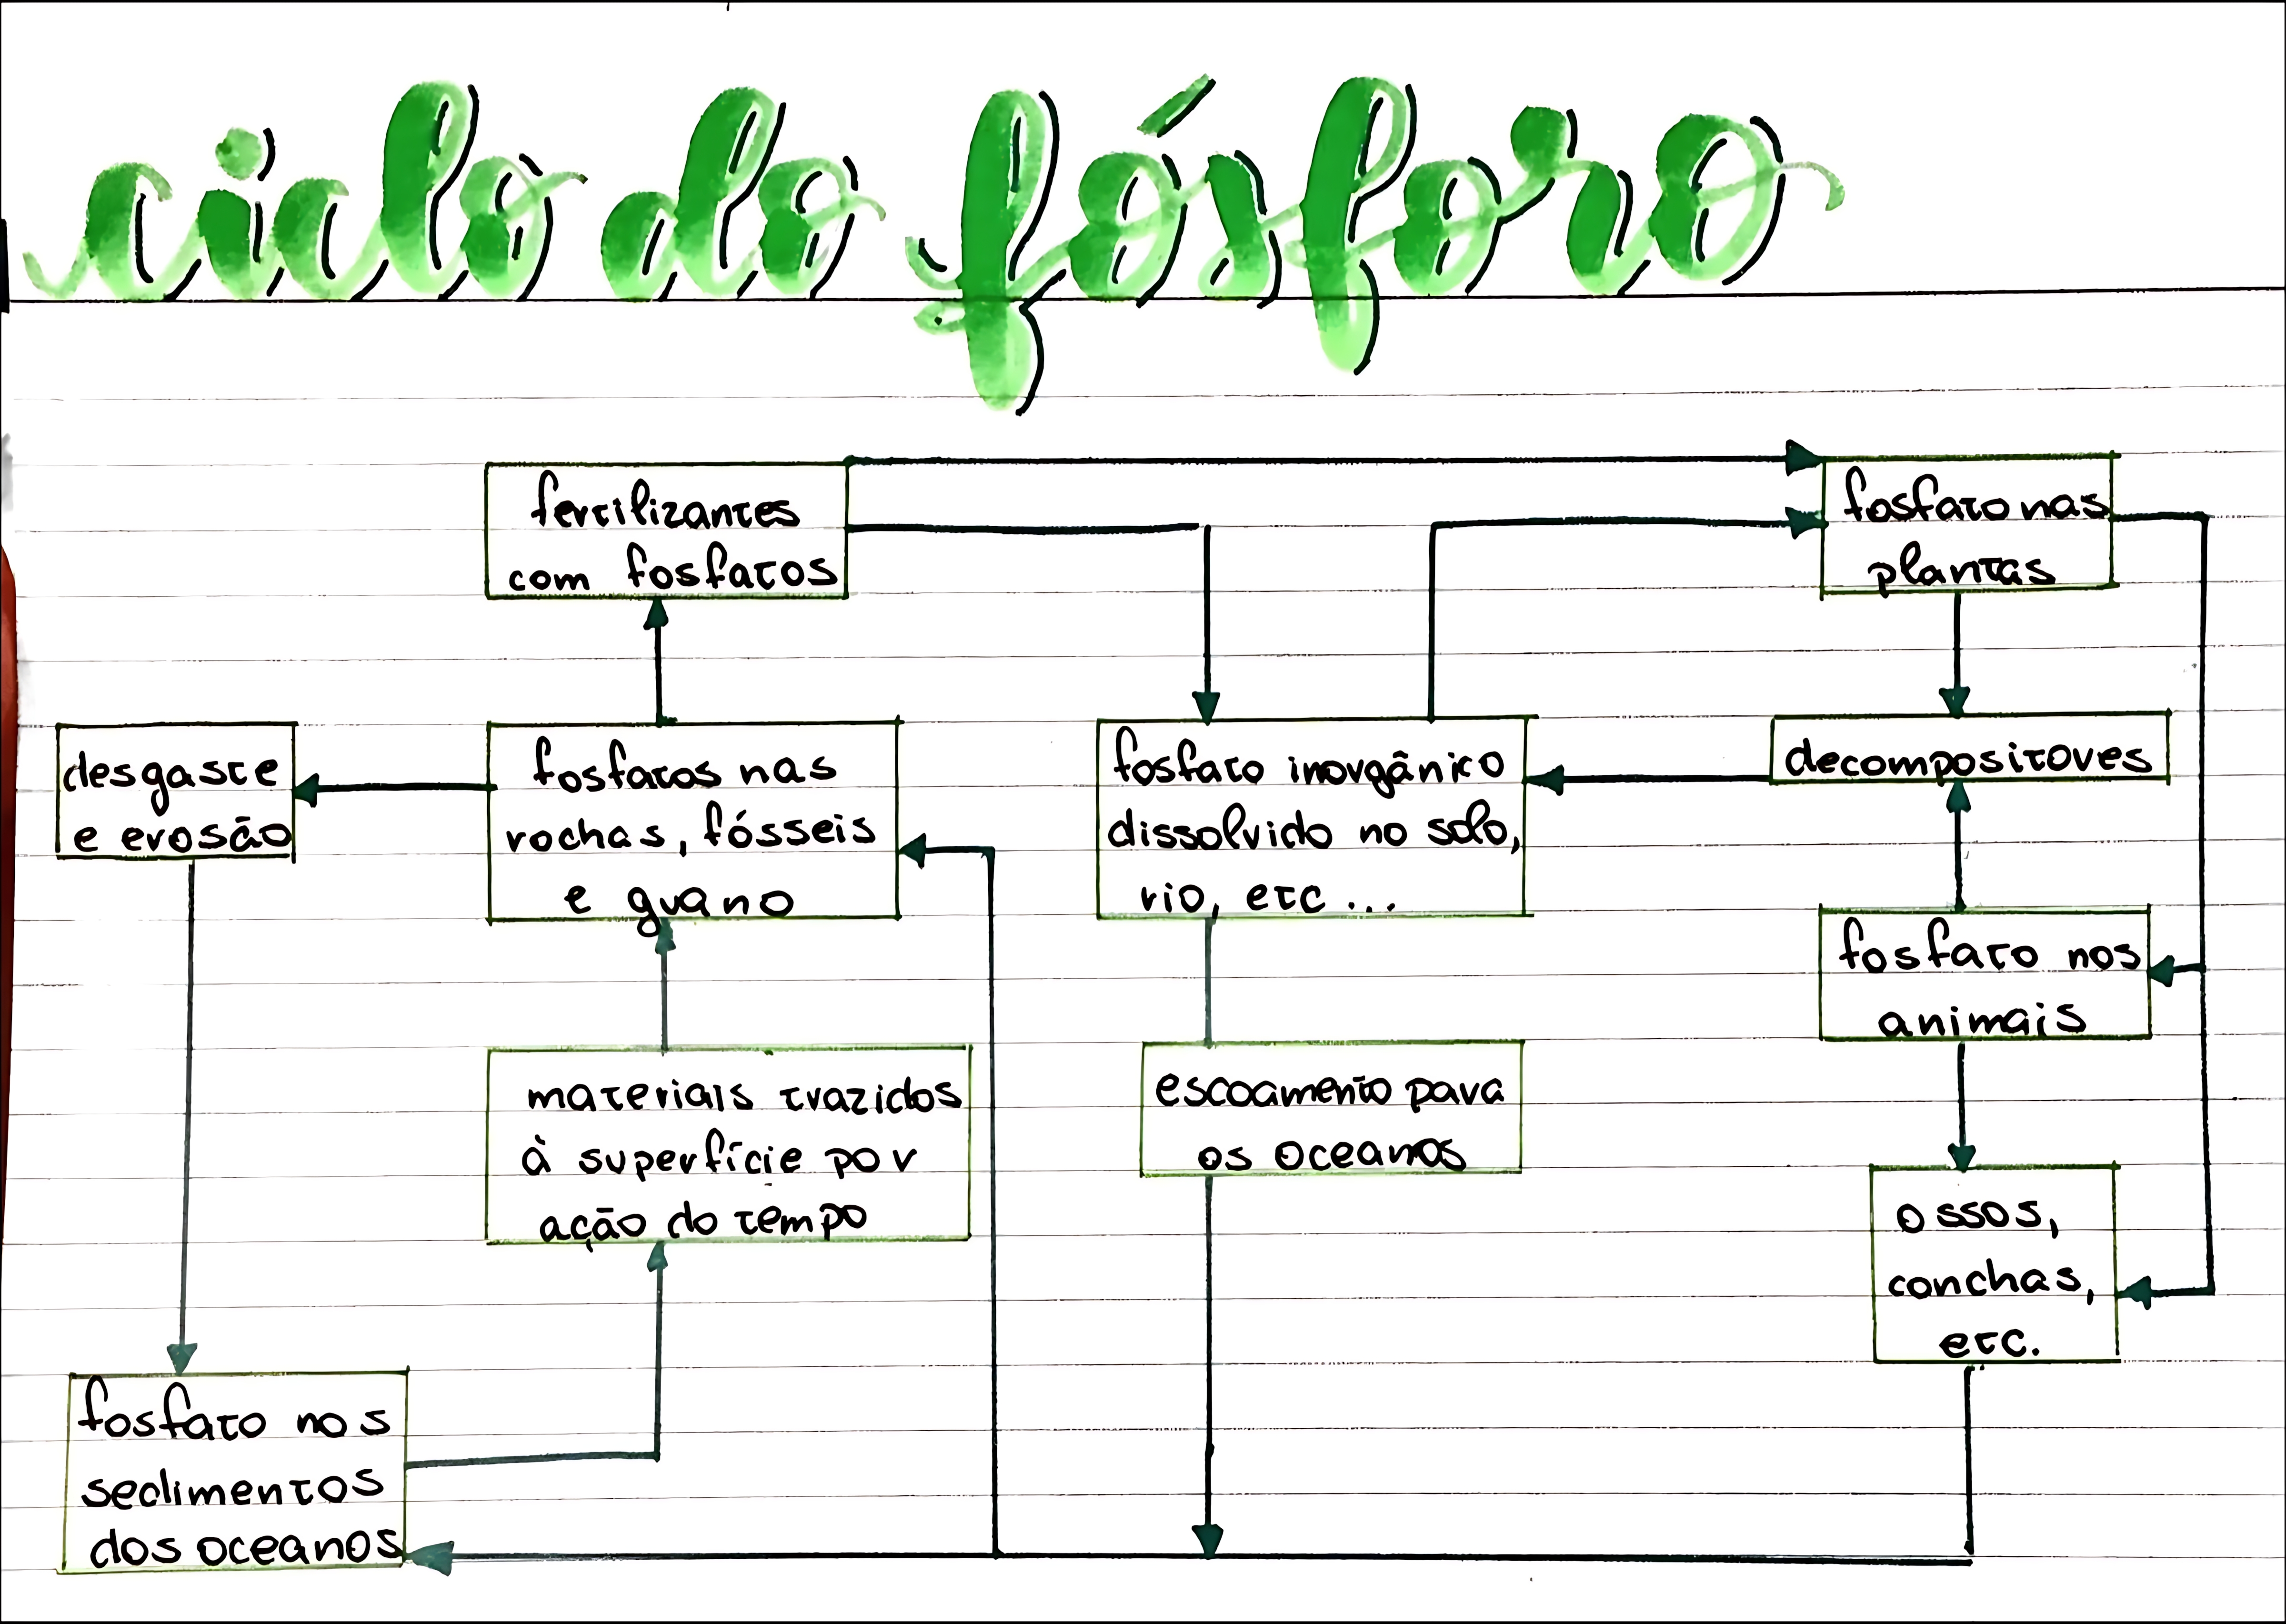 ciclo do fósforo
fertilizantes
com fosfatos
fosfato nas
plantas
desgaste
e erosão
fosfatos nas
rochas, fósseis
e guano
fosfato inorgânico
dissolvido no solo,
rio, etc...
decompositores
fosfato nos
animais
materiais trazidos
à superfície por
ação do tempo
escoamento para
os oceanos
ossos,
conchas,
etc.
fosfato nos
sedimentos
dos oceanos